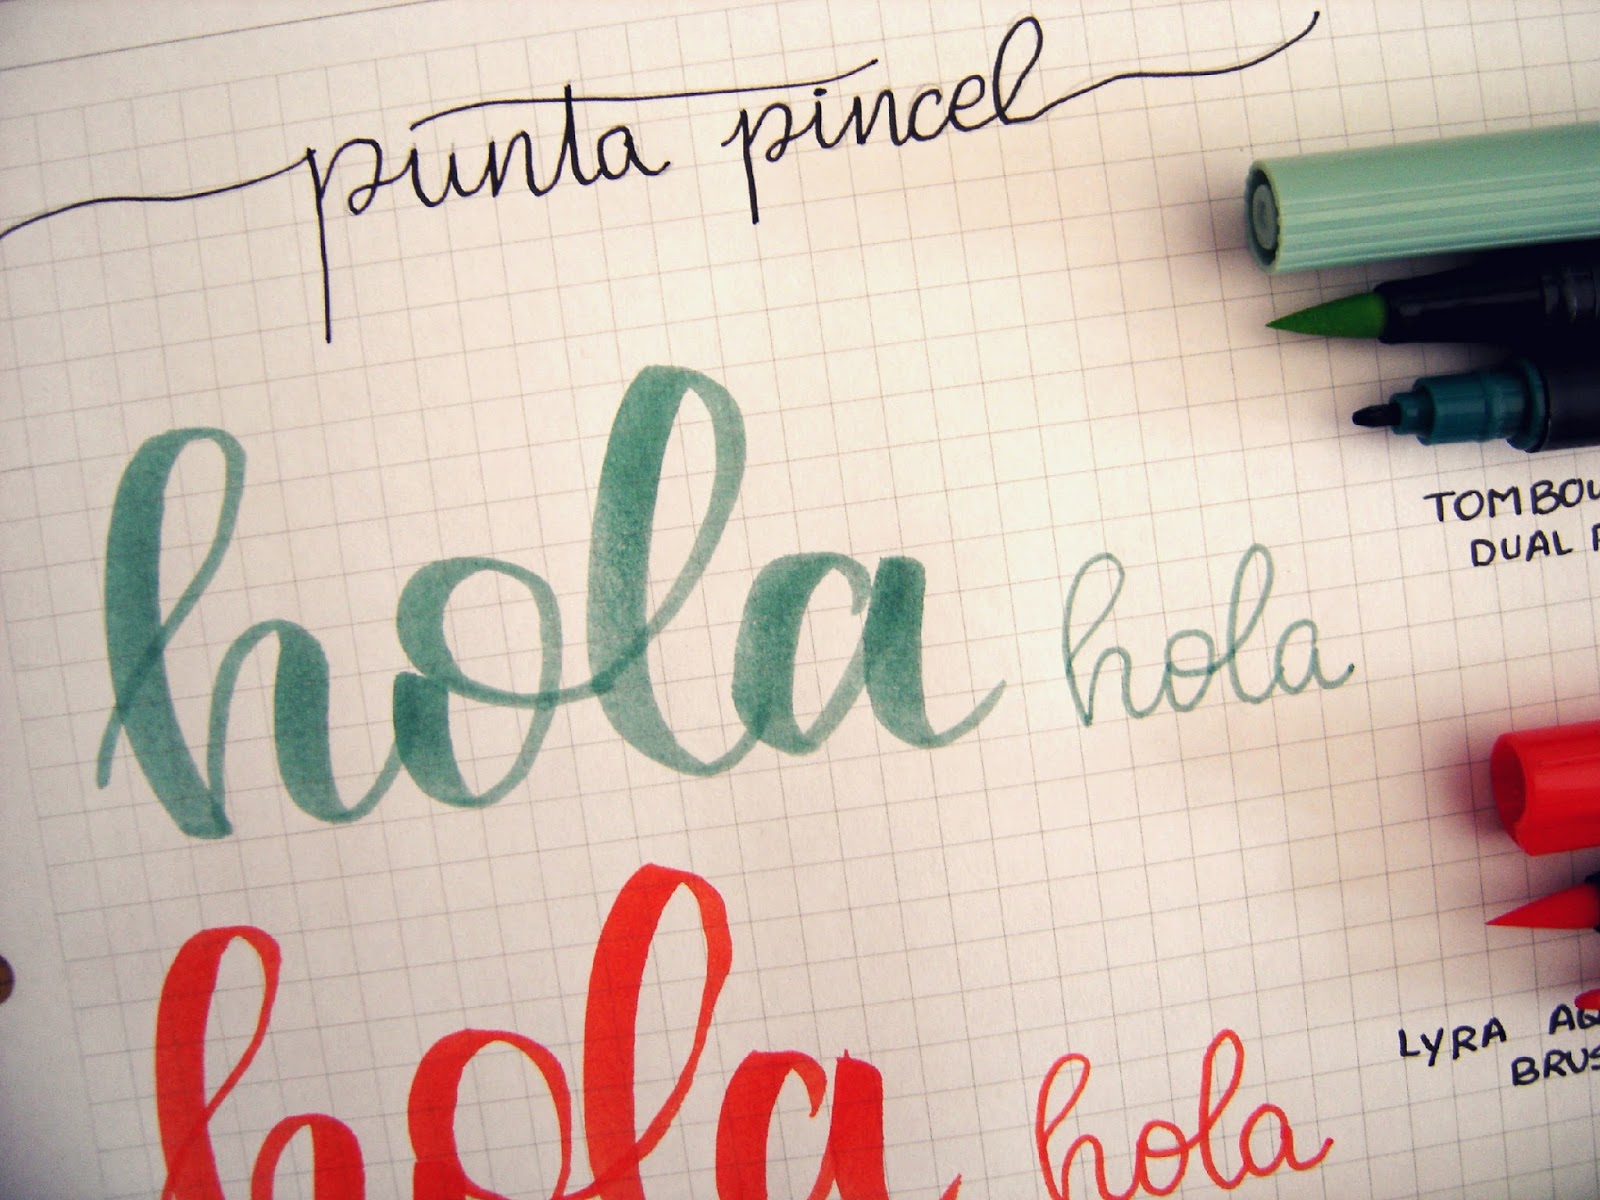 punta pincel
hola hola
TOMBOW
DUAL
hola hola
LYRA